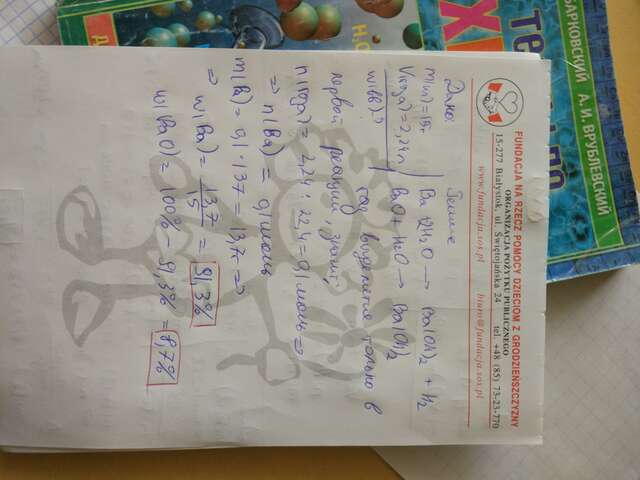 БАРКОВСКИЙ А. И. ВРУБЛЕВСКИЙ
ТЕ
ПО
Х
Н.О
Д
FUNDACJA NA RZECZ POMOCY DZIECIOM Z GRODZIEŃSZCZYZNY
ORGANIZACJA POŻYTKU PUBLICZNEGO
15-277 Białystok, ul. Świętojańska 24 tel. +48 (85) 73-23-770
www.fundacja.sos.pl biuro@fundacja.sos.pl
Дано:
m(см)=15г
V(газа)=2,24л
w(BB)?
Решение
Ba 2H₂O → Ba(OH)₂ + H₂
BaO + H₂O → Ba(OH)₂
газ выделяется только в
первой реакции, значит,
n(газа) = 2,24 : 22,4 = 0,1 моль ⇒
⇒ n(Ba) = 0,1 моль
m(Ba) = 0,1 · 137 = 13,7г ⇒
⇒ w(Ba) = 13,7/15 = 91,3%
w(BaO) = 100% − 91,3% = 8,7%